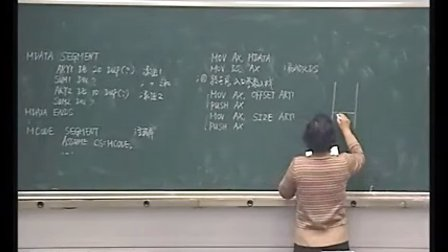 MDATA SEGMENT
ARY1 DB 20 DUP(?) ;数组1
SUM1 DW ?
ARY2 DB 10 DUP(?) ;数组2
SUM2 DW ?
MDATA ENDS
MCODE SEGMENT
ASSUME CS=MCODE,
MOV AX, MDATA
MOV DS, AX
MOV AX, OFFSET ARY1
PUSH AX
MOV AX, SIZE ARY1
PUSH AX